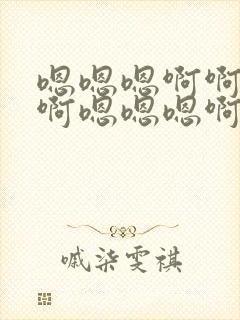 嗯嗯嗯啊啊
啊嗯嗯嗯啊
戚柒雯祺